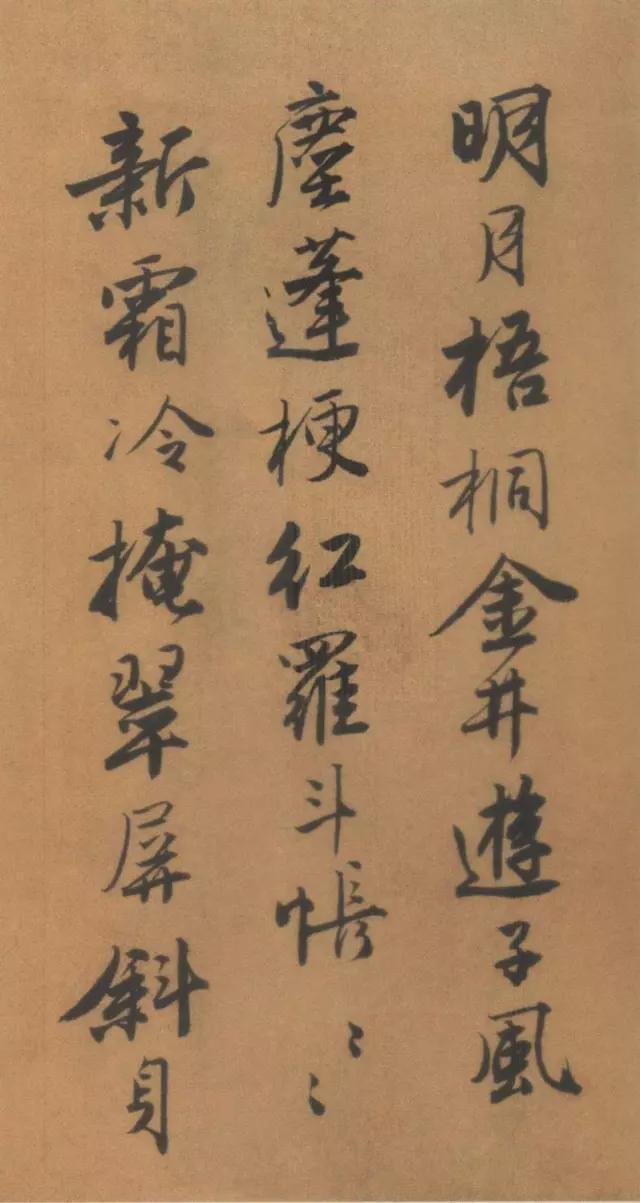 明月梧桐金井遊子風
塵蓬梗紅羅斗帳〻〻
新霜冷掩翠屏斜